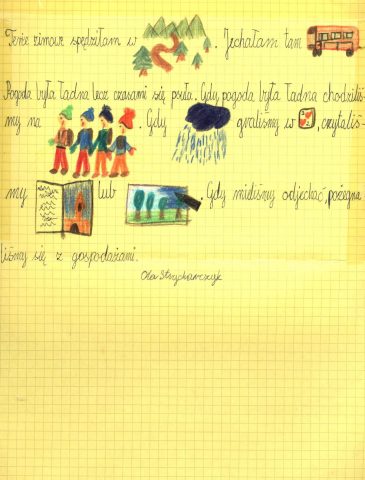 Ferie zimowe spędziłam w . Jechałam tam
Pogoda była ładna lecz czasami się psuła. Gdy pogoda była ładna chodziliś-
my na . Gdy graliśmy w , czytaliś-
my lub . Gdy mieliśmy odjechać, pożegna-
liśmy się z gospodażami.
Ola